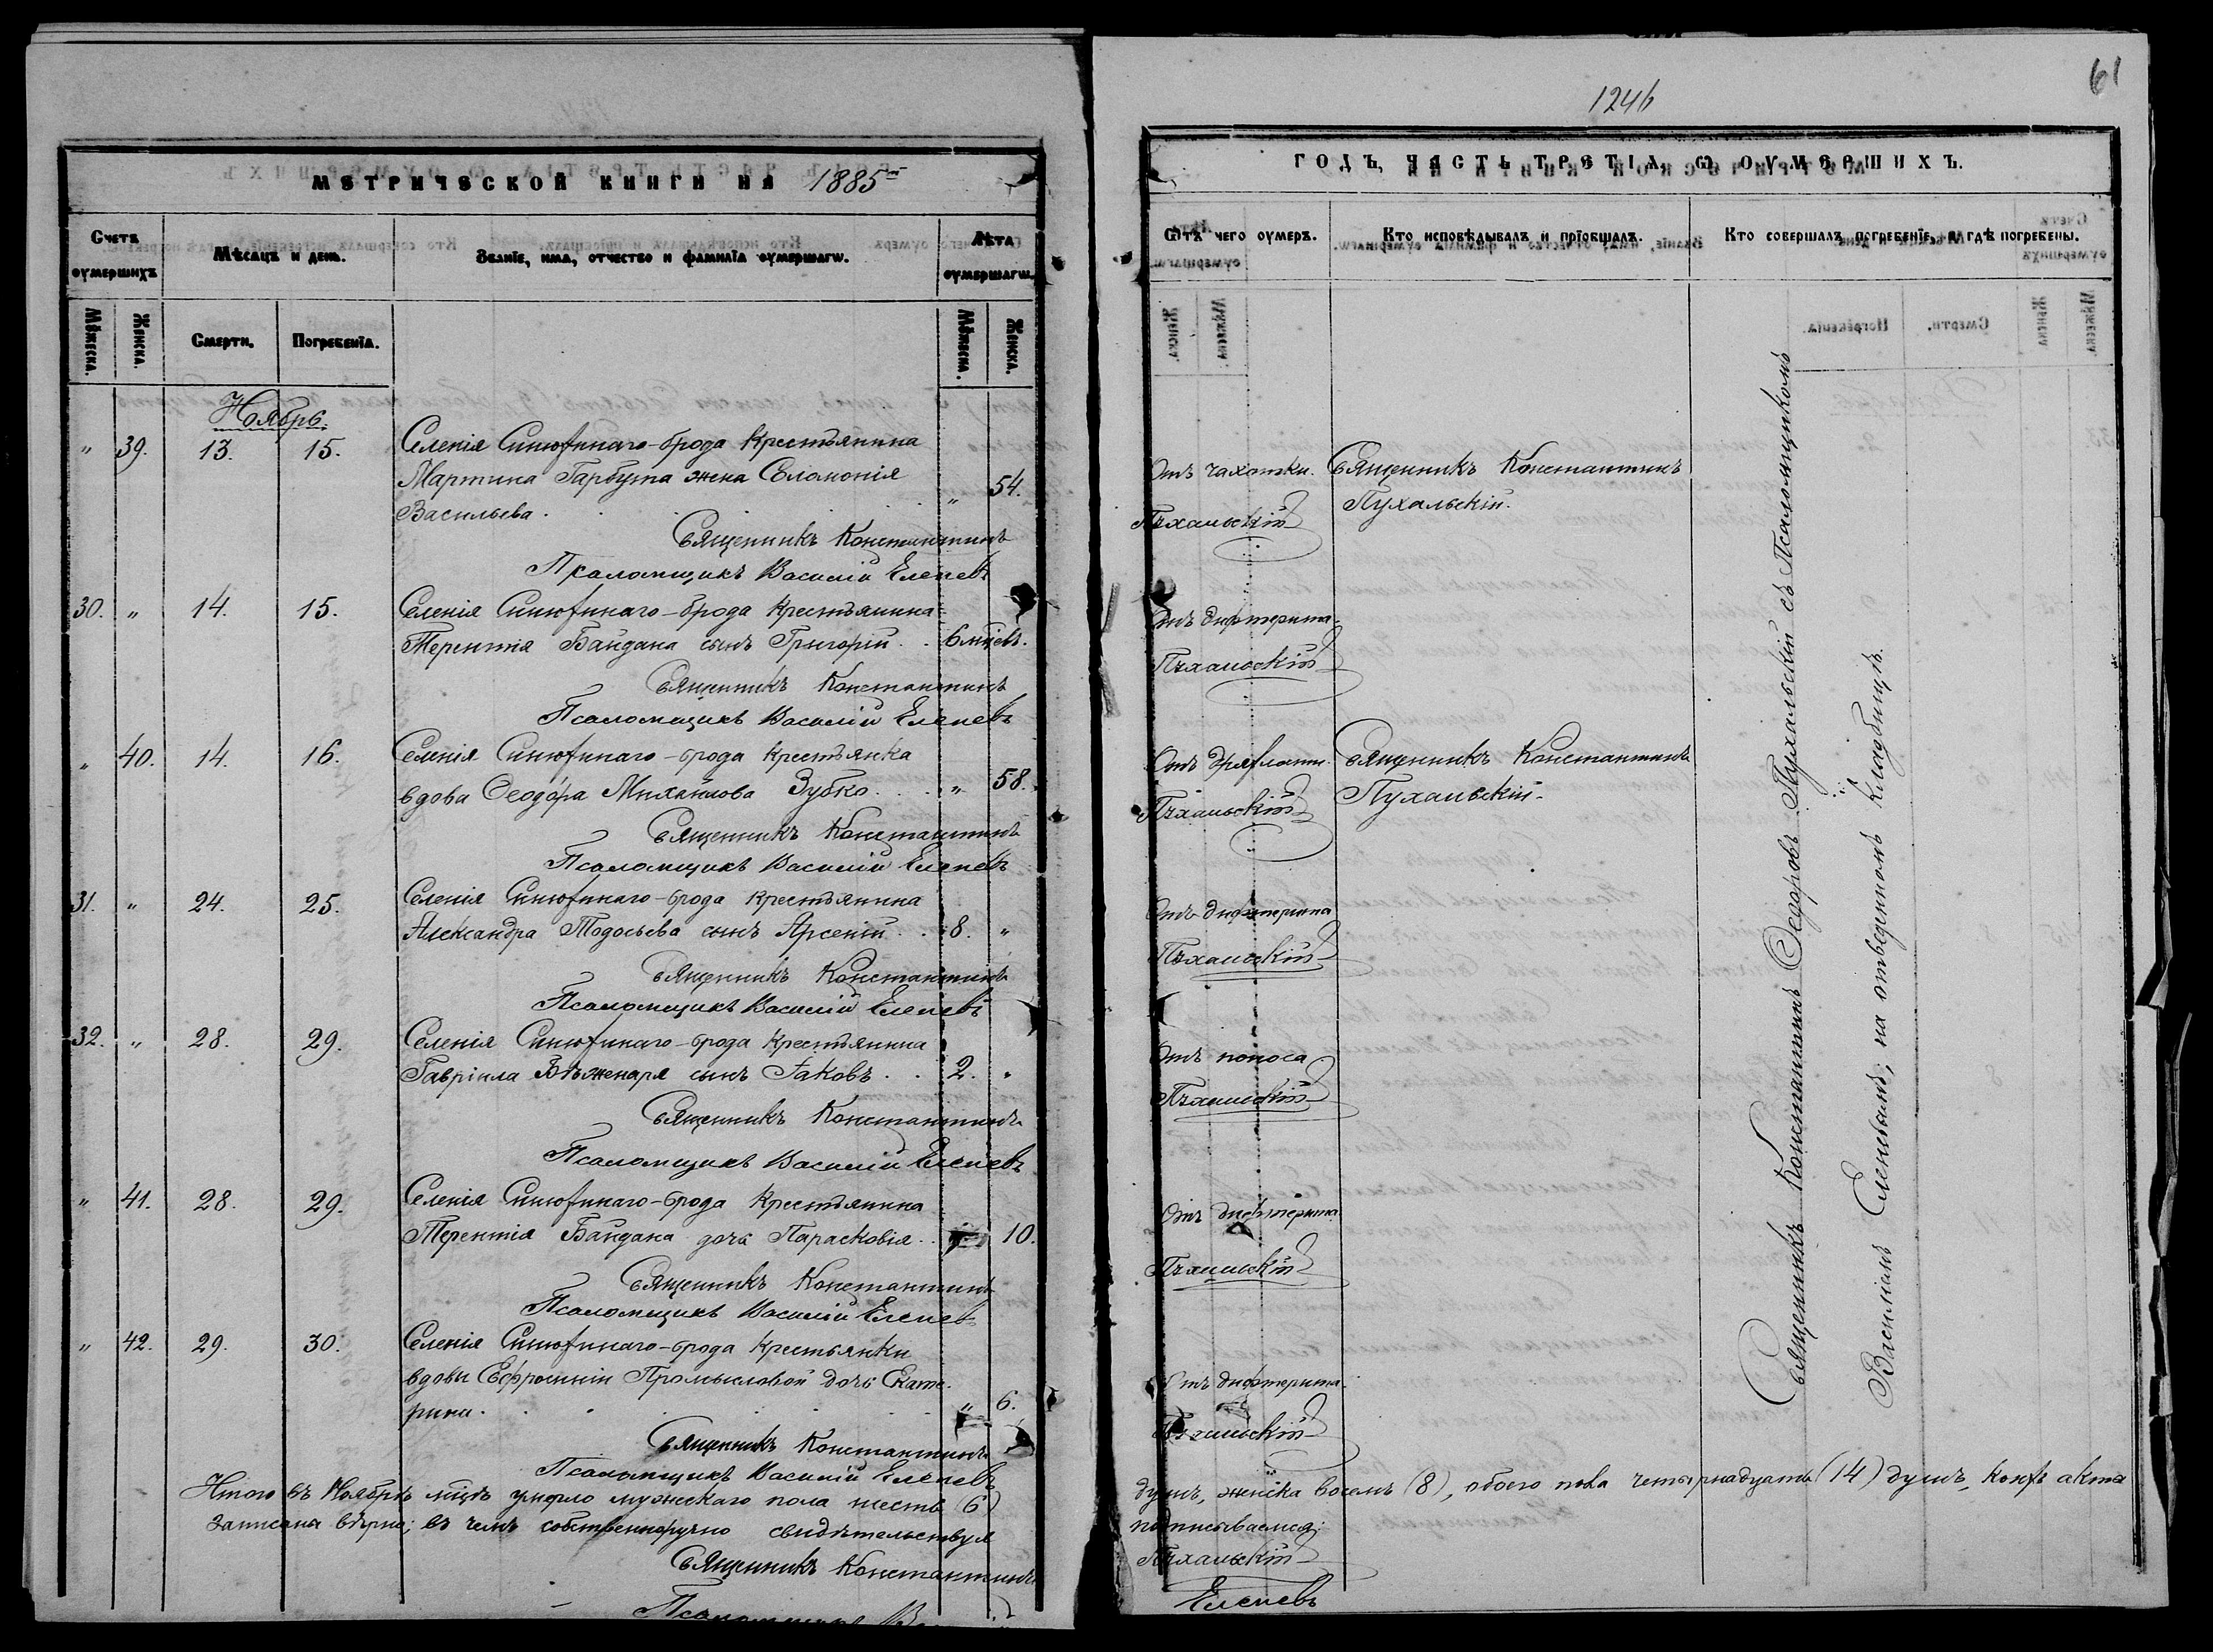 МЕТРИЧЕСКОЙ КНИГИ НА 1885й
Счетъ оумершихъ
Мѣсяцъ и день.
Званїе, имя, отчество и фамилїа оумершагѡ.
Лѣта оумершагѡ.
Мꙋжеска.
Женска.
Смерти.
Погребенїа.
Мꙋжеска.
Женска.
Ноябрь.
" 39. 13. 15. Селенія Синюхинаго-брода крестьянина
Мартина Гарбуза жена Соломонія
Васильева. " 54.
Священникъ Константинъ
Псаломщикъ Василій Еленевъ
30. " 14. 15. Селенія Синюхинаго-брода крестьянина
Терентія Байдана сынъ Григорій. . 6 мцевъ.
Священникъ Константинъ
Псаломщикъ Василій Еленевъ
" 40. 14. 16. Селенія Синюхинаго-брода крестьянка
вдова Феодора Михайлова Зубко. . " 58.
Священникъ Константинъ
Псаломщикъ Василій Еленевъ
31. " 24. 25. Селенія Синюхинаго-брода крестьянина
Александра Тодосьева сынъ Арсеній. . 8. "
Священникъ Константинъ
Псаломщикъ Василій Еленевъ
32. " 28. 29. Селенія Синюхинаго-брода крестьянина
Гавріила сынъ Іаковъ. . 2. "
Священникъ Константинъ
Псаломщикъ Василій Еленевъ
" 41. 28. 29. Селенія Синюхинаго-брода крестьянина
Терентія Байдана дочь Парасковія. . 10.
Священникъ Константинъ
Псаломщикъ Василій Еленевъ
" 42. 29. 30. Селенія Синюхинаго-брода крестьянки
вдовы Евфросиніи Промысловой дочь Екате-
рина. " 6.
Священникъ Константинъ
Псаломщикъ Василій Еленевъ
Итого въ Ноябрѣ мцѣ умерло мужескаго пола шесть (6)
записаны вѣрно; въ чемъ собственноручно свидѣтельствуя
Священникъ Константинъ
Псаломщикъ
61
1246
ГОДЪ, ЧАСТЬ ТРЕТІА, Ѡ ОУМЕРШИХЪ.
Ѿтъ чего оумеръ.
Кто исповѣдывалъ и прїобщалъ.
Кто совершалъ погребенїе, и гдѣ погребены.
Отъ чахотки. Священникъ Константинъ
Пухальскій.
Пухальскій
Отъ дифтерита.
Пухальскій
Отъ дряхлости. Священникъ Константинъ
Пухальскій.
Пухальскій
Отъ дифтерита
Пухальскій
Отъ поноса
Пухальскій
Отъ дифтерита
Пухальскій
Отъ дифтерита.
Пухальскій
Священникъ Константинъ Федоровъ Пухальскій съ Псаломщикомъ
Василіемъ Еленевымъ; на отведенномъ кладбищѣ.
душъ, женска восемь (8), обоего пола четырнадцать (14) душъ, коихъ акты
подписываемся:
Пухальскій
Еленевъ